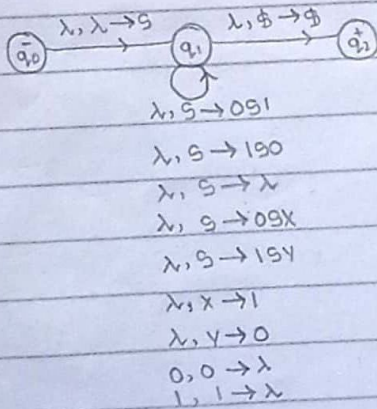 λ, λ → S
λ, $ → $
q₀⁻
q₁
q₂⁺
λ, S → 0S1
λ, S → 1S0
λ, S → λ
λ, S → 0SX
λ, S → 1SY
λ, X → 1
λ, Y → 0
0, 0 → λ
1, 1 → λ